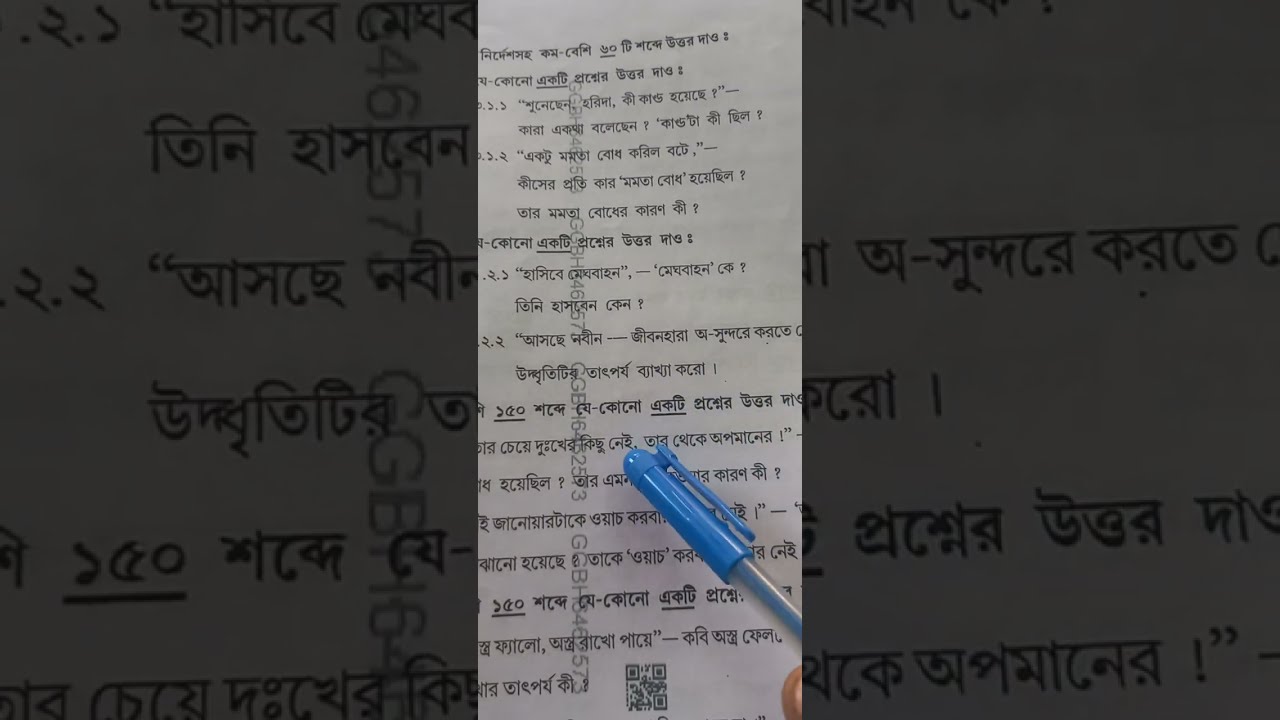 নির্দেশসহ কম-বেশি ৬০ টি শব্দে উত্তর দাও :
য-কোনো একটি প্রশ্নের উত্তর দাও :
.১.১ “শুনেছেন, হরিদা, কী কাণ্ড হয়েছে ?”—
কারা একথা বলেছেন ? ‘কাণ্ড’টা কী ছিল ?
.১.২ “একটু মমতা বোধ করিল বটে,”—
কীসের প্রতি কার ‘মমতা বোধ’ হয়েছিল ?
তার মমতা বোধের কারণ কী ?
য-কোনো একটি প্রশ্নের উত্তর দাও :
.২.১ “হাসিবে মেঘবাহন”, — ‘মেঘবাহন’ কে ?
তিনি হাসবেন কেন ?
.২.২ “আসছে নবীন — জীবনহারা অ-সুন্দরে করতে
উদ্ধৃতিটির তাৎপর্য ব্যাখ্যা করো ।
১৫০ শব্দে যে-কোনো একটি প্রশ্নের উত্তর দাও
তার চেয়ে দুঃখের কিছু নেই, তার থেকে অপমানের !” —
হয়েছিল ? তার কারণ কী ?
ই জানোয়ারটাকে ওয়াচ —
ঝানো হয়েছে ? তাকে ‘ওয়াচ’ নেই
১৫০ শব্দে যে-কোনো একটি
স্ত্র ফ্যালো, অস্ত্র রাখো পায়ে”— কবি অস্ত্র
তাৎপর্য কী ?